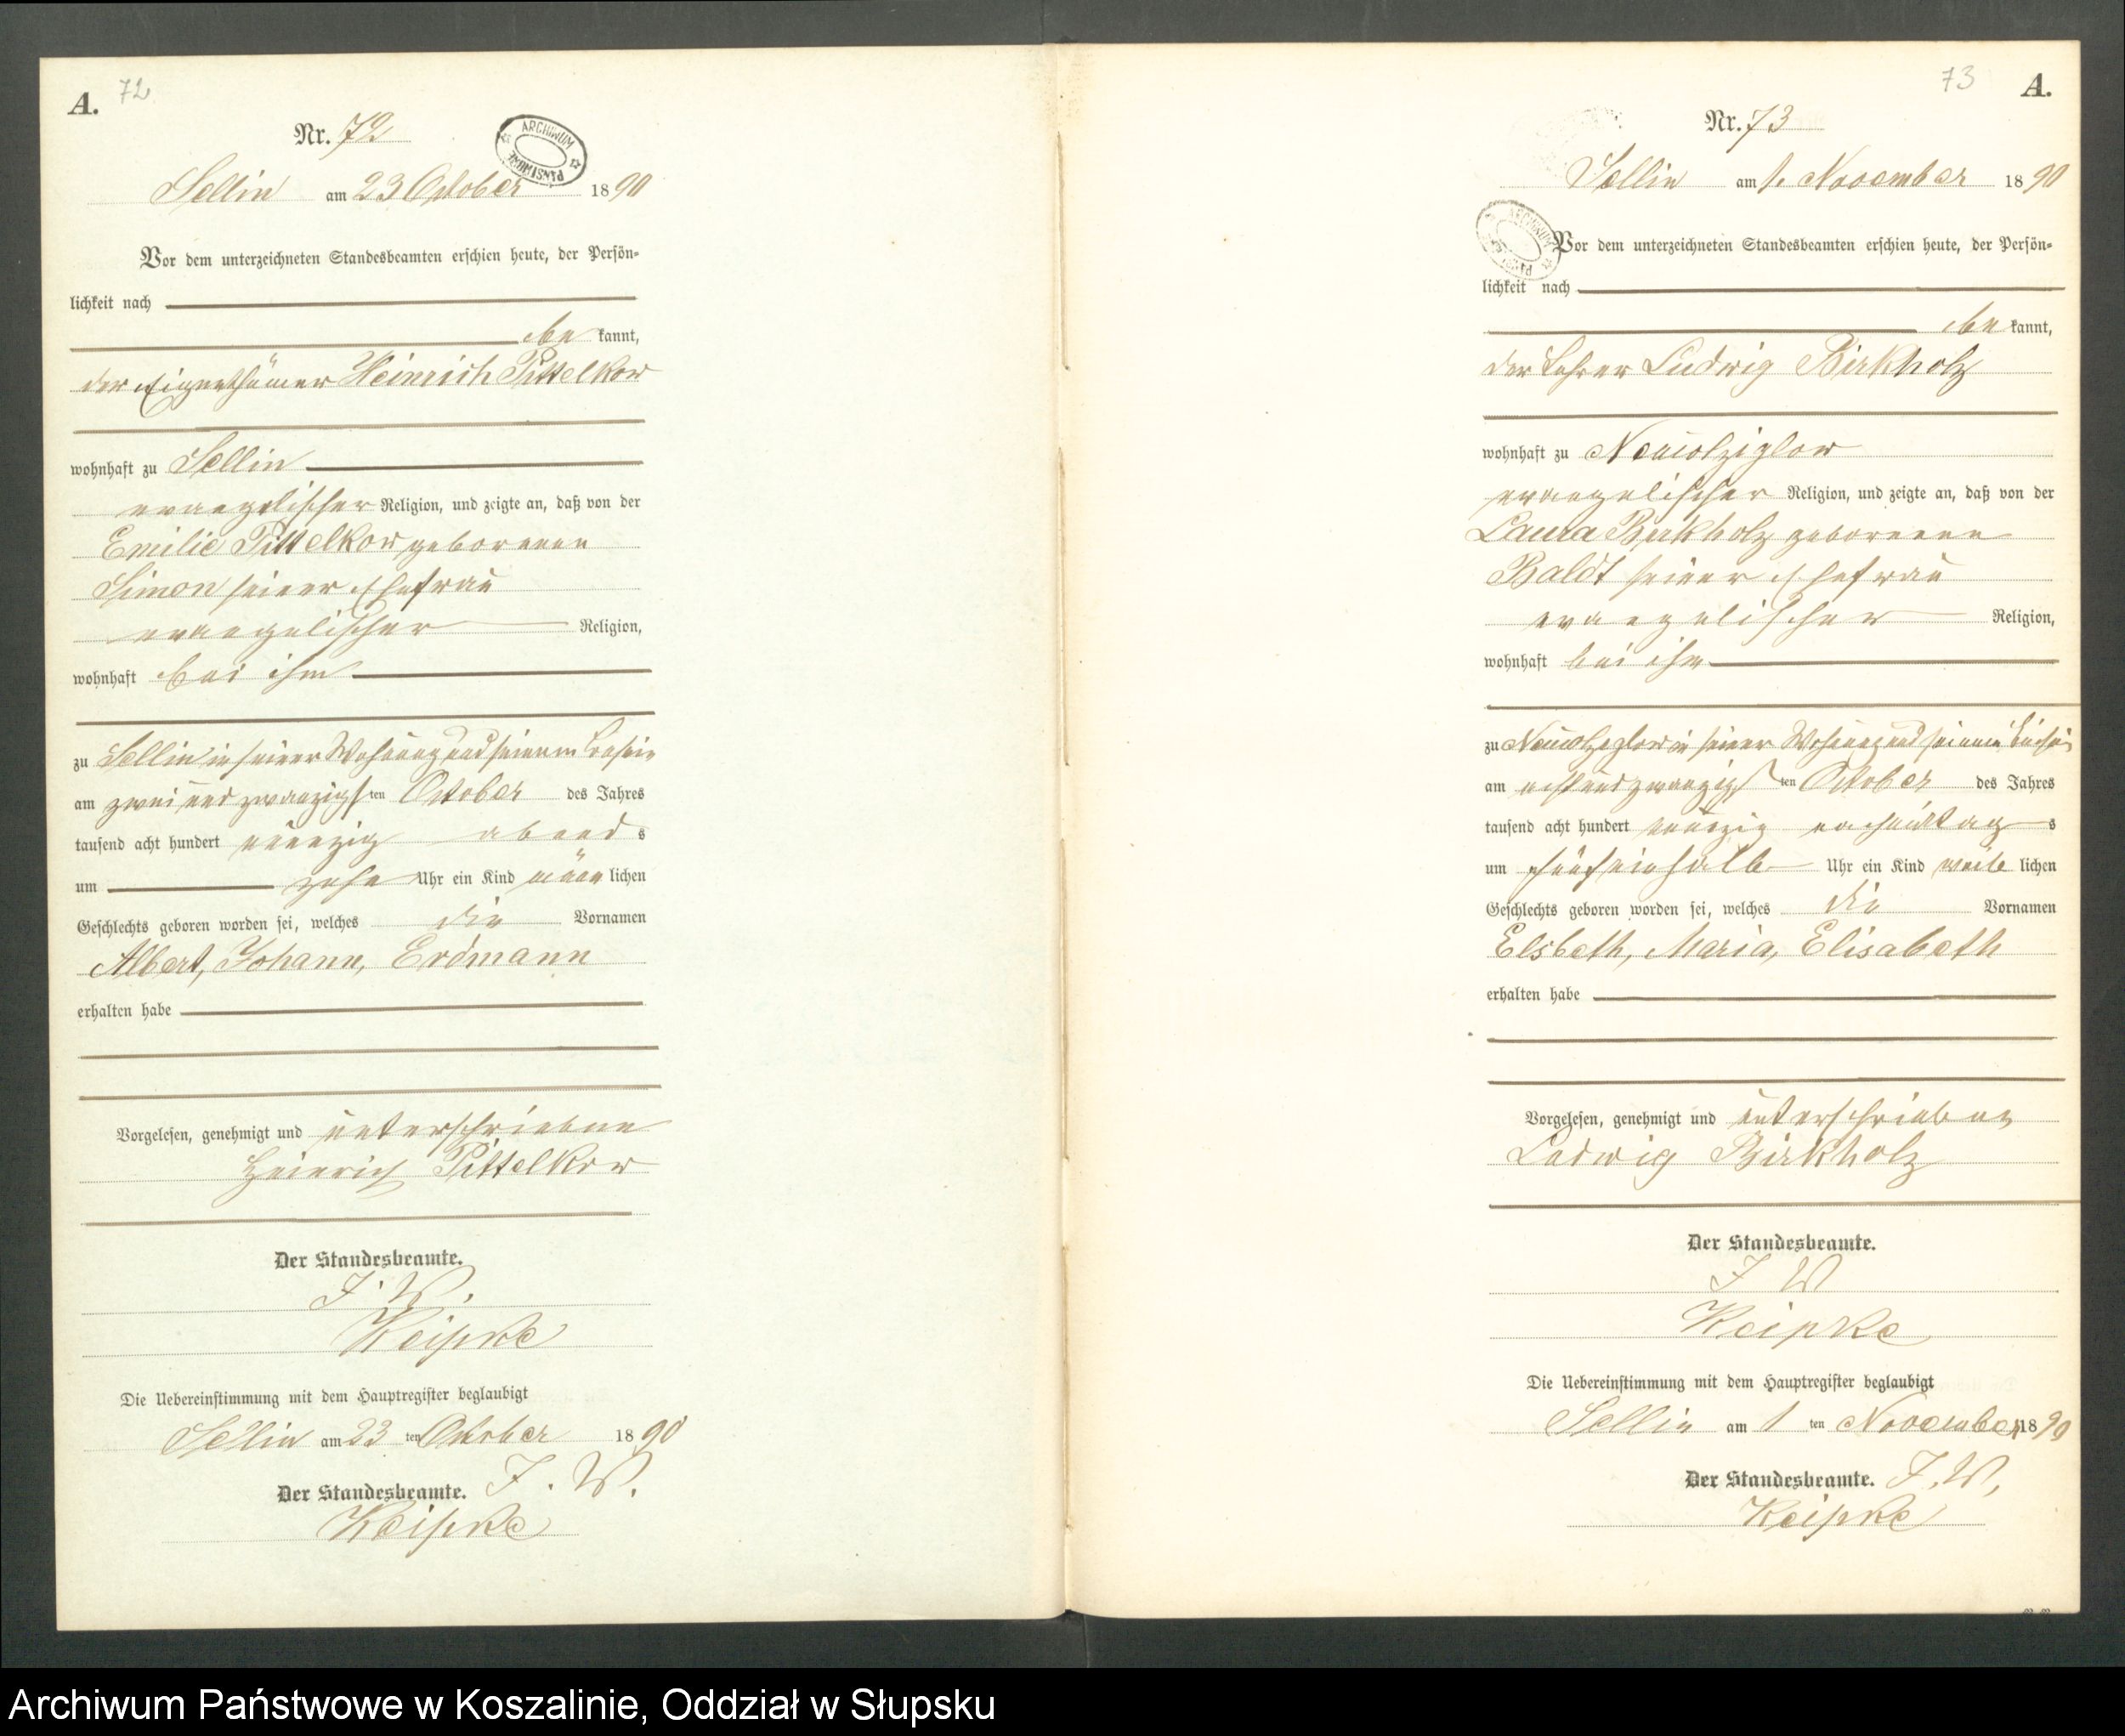 A. 72
ARCHIWUM PAŃSTWOWE
Nr. 72
Sellin am 23 October 1890
Vor dem unterzeichneten Standesbeamten erschien heute, der Persön-
lichkeit nach
be kannt,
der Eigenthümer Heinrich Pittelkow
wohnhaft zu Sellin
evangelischer Religion, und zeigte an, daß von der
Emilie Pittelkow geborenen
Simon seiner Ehefrau
evangelischer Religion,
wohnhaft bei ihm
zu Sellin in seiner Wohnung und seinem Beisein
am zwei und zwanzigsten October des Jahres
tausend acht hundert neunzig abends
um zehn Uhr ein Kind männlichen
Geschlechts geboren worden sei, welches die Vornamen
Albert, Johann, Erdmann
erhalten habe
Vorgelesen, genehmigt und unterschrieben
Heinrich Pittelkow
Der Standesbeamte.
J. W.
Keipke
Die Uebereinstimmung mit dem Hauptregister beglaubigt
Sellin am 23 ten October 1890
Der Standesbeamte. J. W.
Keipke
73 A.
Nr. 73
Sellin am 1. November 1890
ARCHIWUM
Vor dem unterzeichneten Standesbeamten erschien heute, der Persön-
lichkeit nach
be kannt,
der Lehrer Ludwig Birkholz
wohnhaft zu Neukolziglow
evangelischer Religion, und zeigte an, daß von der
Laura Birkholz geborenen
Baldt seiner Ehefrau
evangelischer Religion,
wohnhaft bei ihm
zu Neukolziglow in seiner Wohnung und seinem Beisein
am acht und zwanzigsten October des Jahres
tausend acht hundert neunzig nachmittags
um fünfeinhalb Uhr ein Kind weiblichen
Geschlechts geboren worden sei, welches die Vornamen
Elsbeth, Maria, Elisabeth
erhalten habe
Vorgelesen, genehmigt und unterschrieben
Ludwig Birkholz
Der Standesbeamte.
J W
Keipke
Die Uebereinstimmung mit dem Hauptregister beglaubigt
Sellin am 1 ten November 1890
Der Standesbeamte. J. W.
Keipke
Archiwum Państwowe w Koszalinie, Oddział w Słupsku